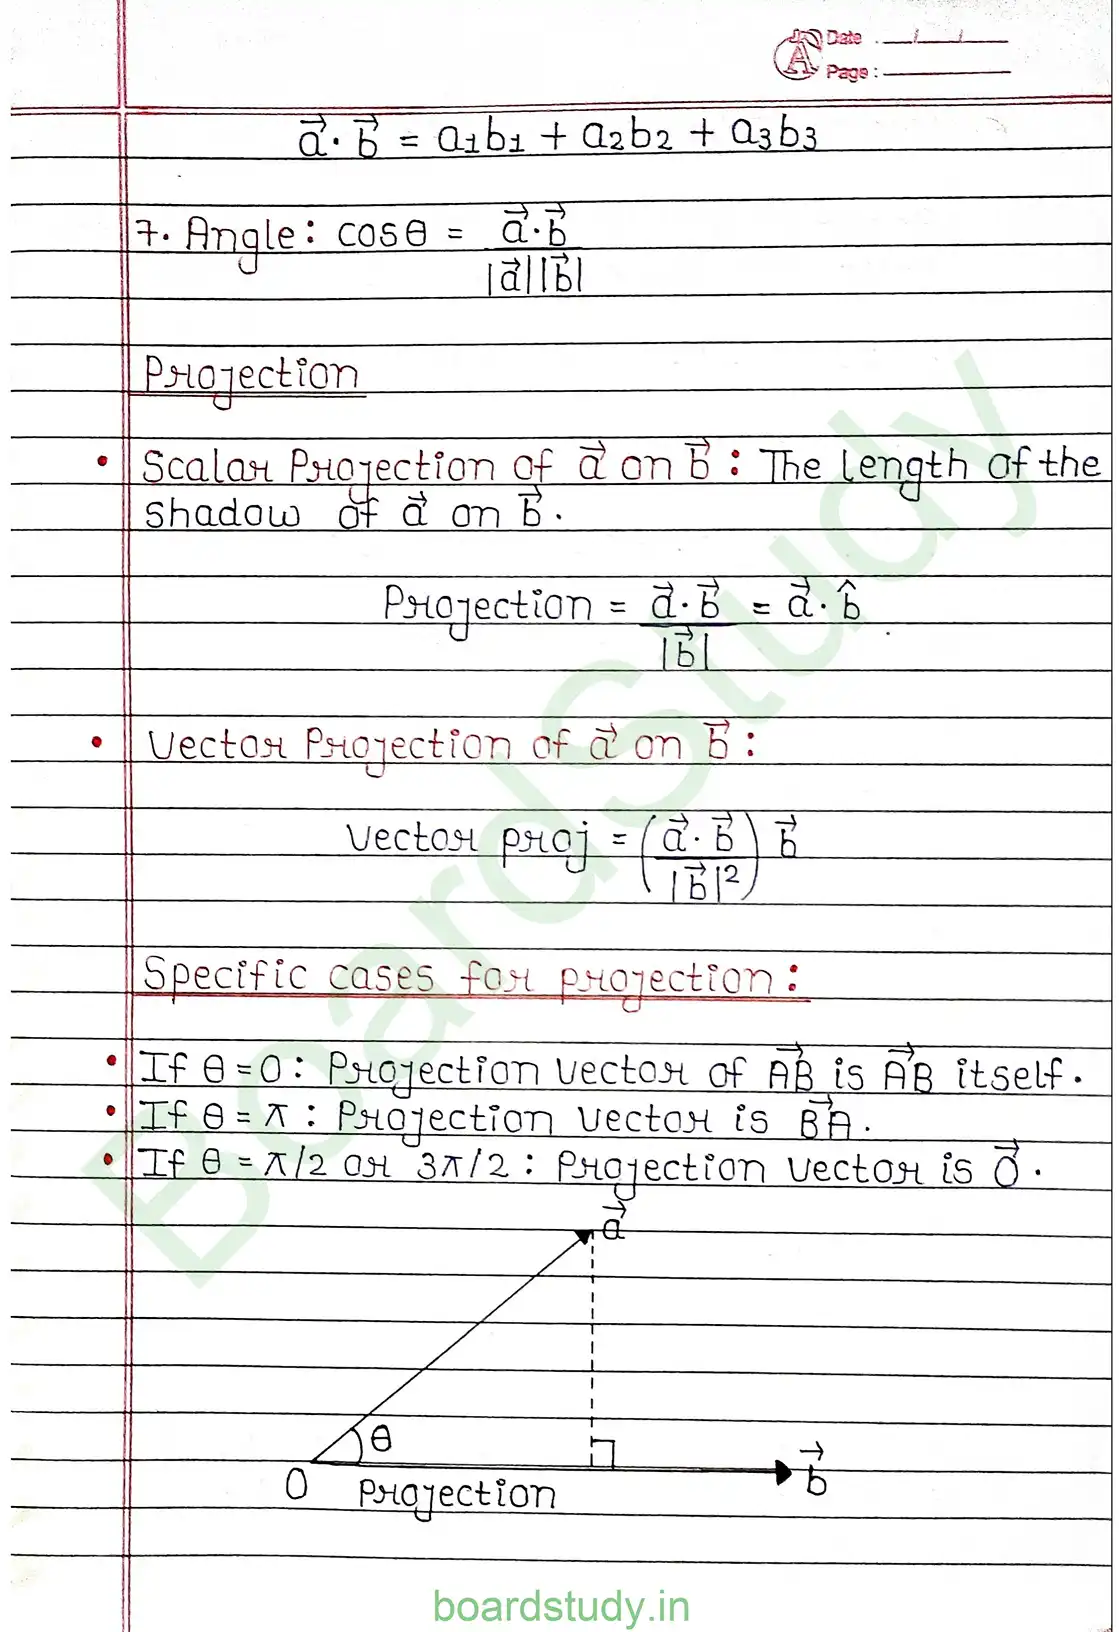 Date : __/__/__
Page :
A
a⃗·b⃗ = a₁b₁ + a₂b₂ + a₃b₃
7. Angle: cosθ = a⃗·b⃗ / |a⃗||b⃗|
Projection
• Scalar Projection of a⃗ on b⃗ : The length of the
shadow of a⃗ on b⃗.
Projection = a⃗·b⃗ / |b⃗| = a⃗·b̂
• Vector Projection of a⃗ on b⃗ :
Vector proj = (a⃗·b⃗ / |b⃗|²) b⃗
Specific cases for projection:
• If θ = 0 : Projection vector of AB⃗ is AB⃗ itself.
• If θ = π : Projection vector is BA⃗.
• If θ = π/2 or 3π/2 : Projection vector is 0⃗.
a⃗
θ
O Projection b⃗
BoardStudy
boardstudy.in